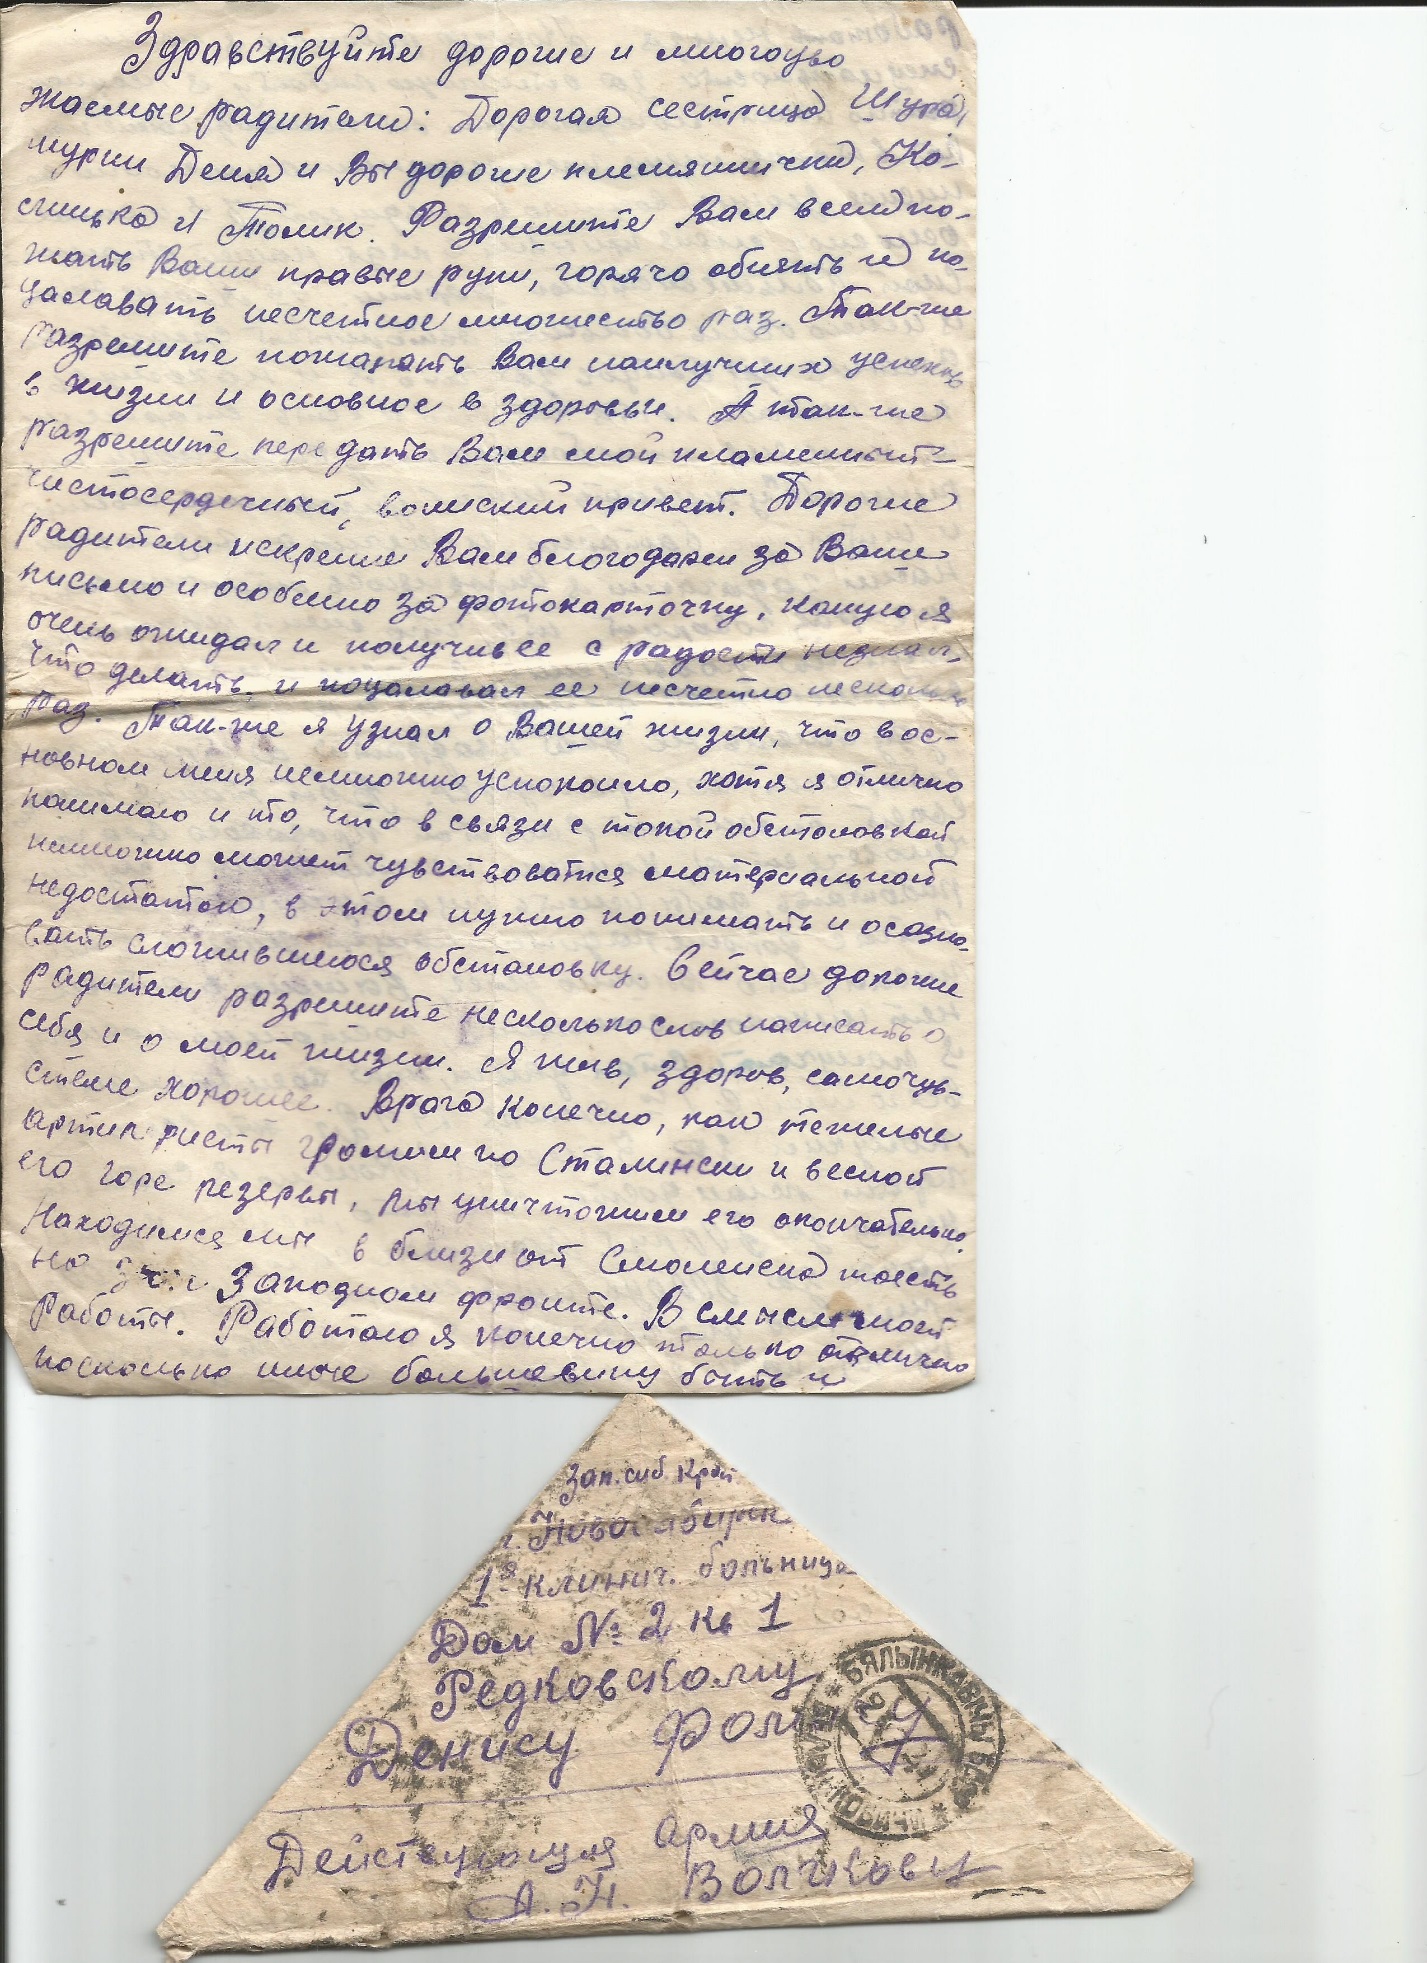 Здравствуйте дорогие и многоува
жаемые радители: Дорогая сестрица Шура,
шурин Деня и Вы дорогие племяннички, Ко-
стинька и Толик. Разрешите Вам всем по-
жать Ваши правые руки, горячо обнять и по-
цаловать несчетное множество раз. Так-же
разрешите пожелать Вам наилучших успехов
в жизни и основное в здоровьи. А так-же
разрешите передать Вам мой пламенный-
чистосердечный, воинский привет. Дорогие
радители искренне Вам благодарен за Ваше
письмо и особенно за фотокарточку, какую я
очень ожидал и получив ее с радости незнал,
что делать, и поцаловал ее несчетно несколько
раз. Так-же я узнал о Вашей жизни, что вос-
новном меня немножко успокоило, хотя я отлично
понимаю и то, что в связи с такой обстановкой
немножко может чувствоватся материальной
недостаток, в этом нужно понимать и осозно-
вать сложившиюся обстановку. Сейчас дорогие
радители разрешите несколько слов написать о
себя и о моей жизни. Я жив, здоров, самочув-
ствие хорошее. Врага конечно, как тежелые
артилеристы громим по Сталински и весной
его горе резервы, мы уничтожим его окончательно.
Находимся мы в близи от Смоленска тоесть
на Западном фронте. В смысле моей
работы. Работаю я конечно только отлично
поскольку иначе большевику быть и
Зап. сиб край
г. Новосибирск
1-я клинич. больница
Дом № 2 кв 1
Редковскому
Денису Фомичу
Действующая Армия
А. Н. Волчковы
БЯЛЫНКАВІЧЫ БССР